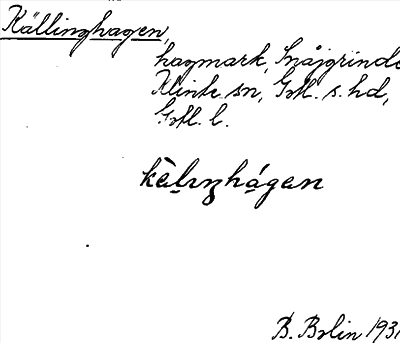 Källinghagen,
hagmark, Snåjgrinde
Klinte sn, Gotl. s. hd,
Gotl. l.
kälınhágen
B. Bolin 193